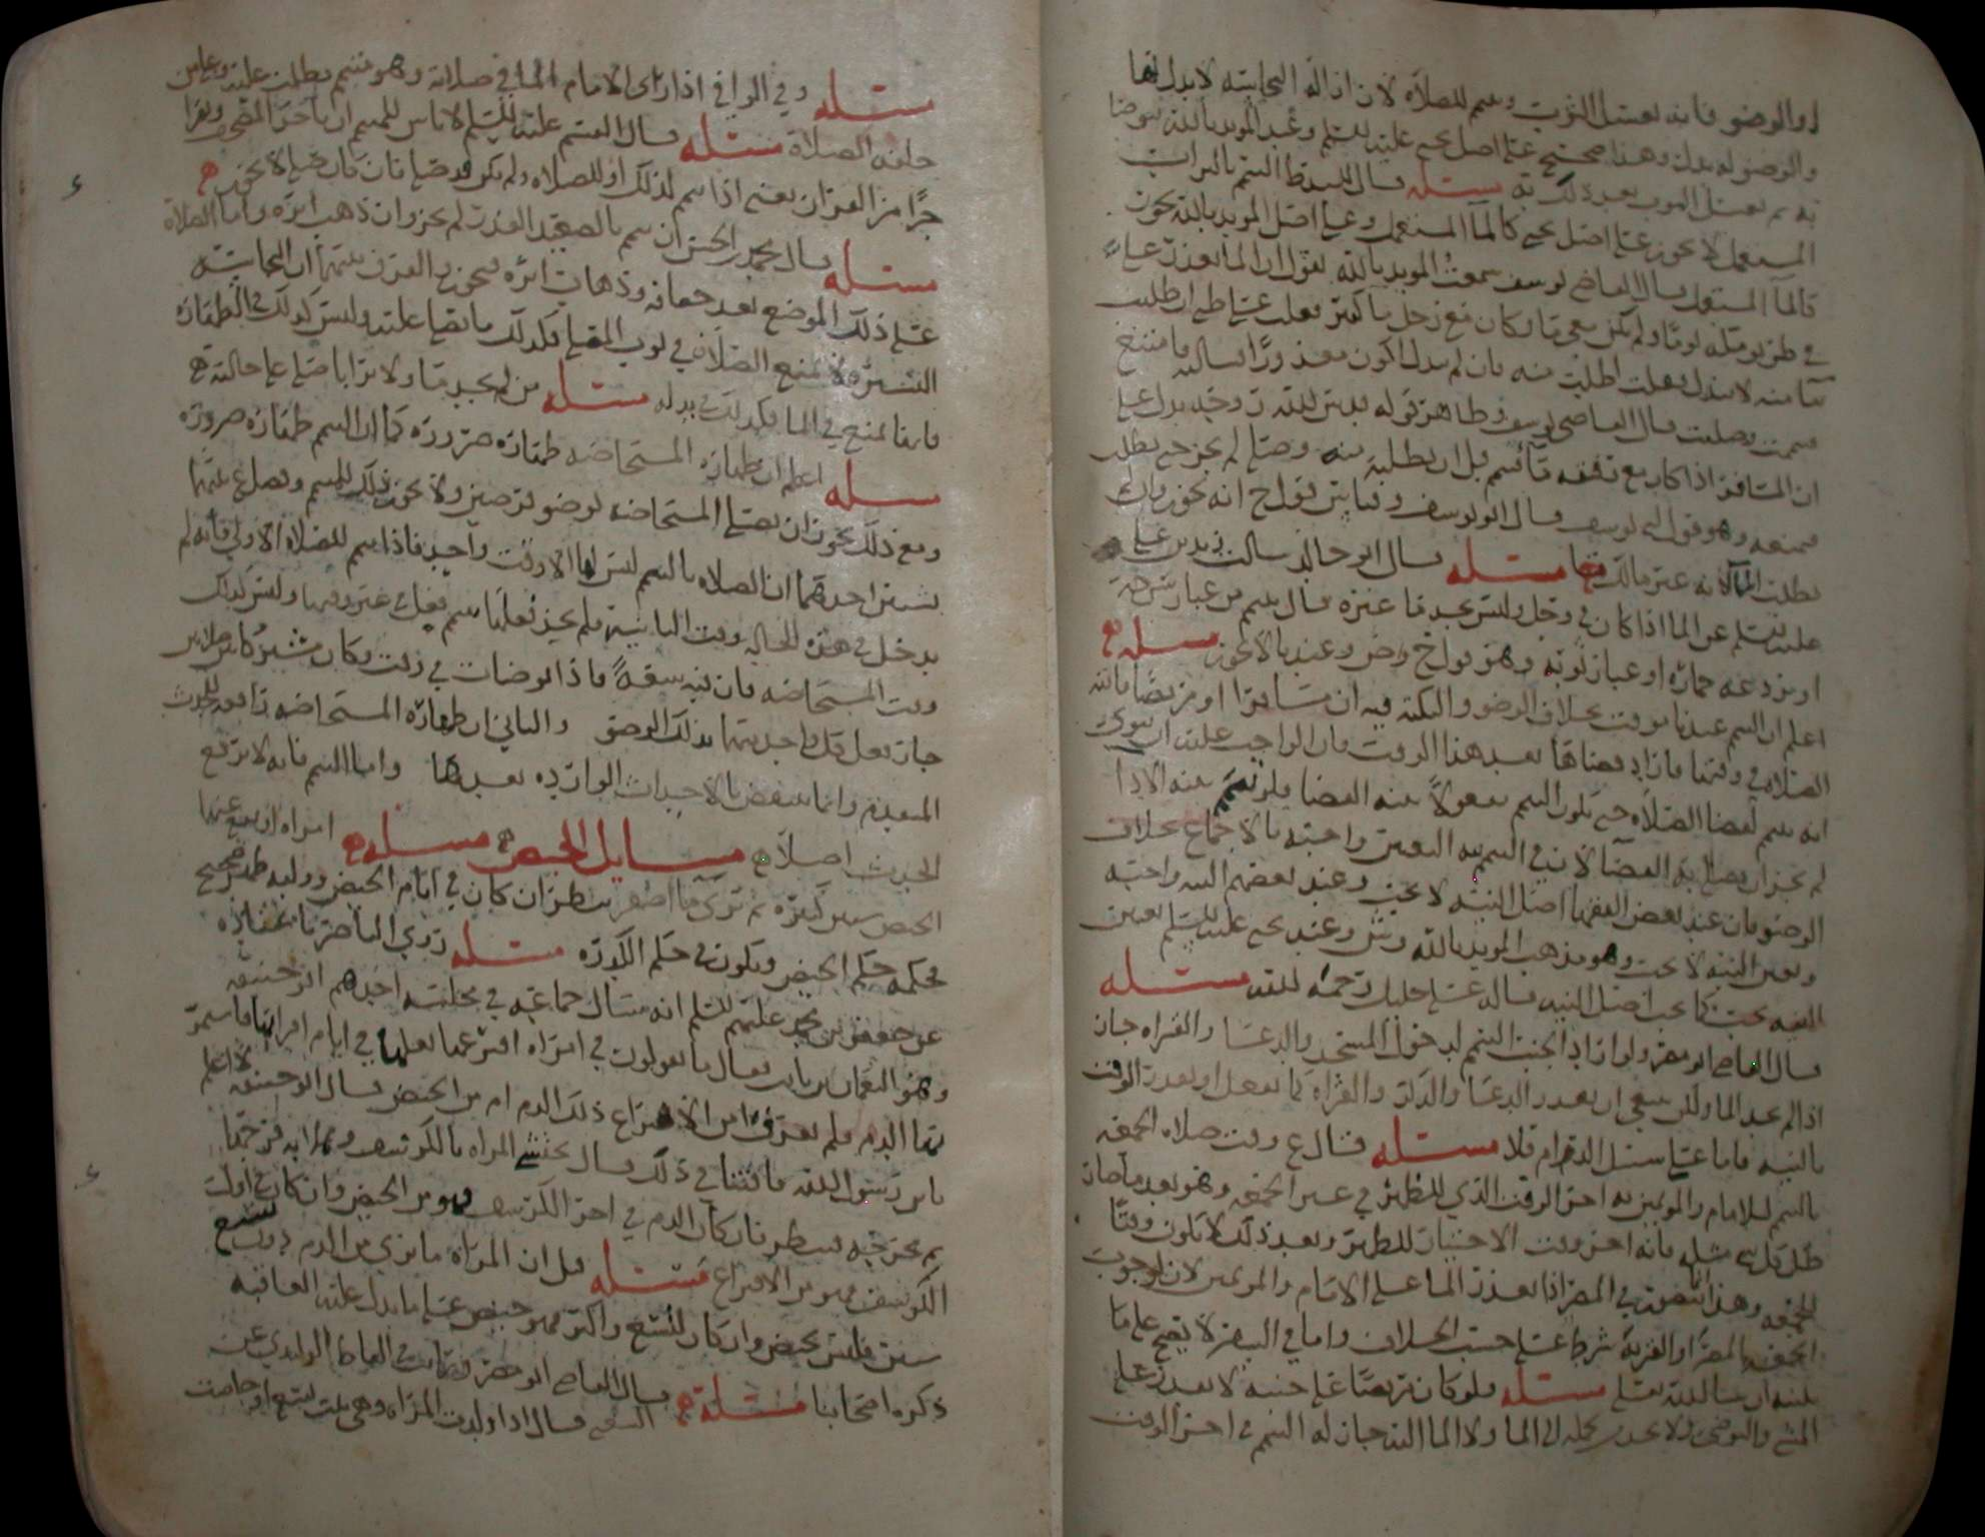 او الوضو فانه يغسل الثوب وييمم للصلاه لان ازالة النجاسه لا بدل لها
والوضو له بدل وهذا صحيح على اصل يحيى عليه السلم وعند المويد بالله يتوضا
به ثم يغسل الثوب بعد ذلك به مسئله قال السيد ط التيمم بالتراب
المستعمل لا يجوز على اصل يحيى كالما المستعمل وعلى اصل المويد بالله يجوز
كالما المستعمل قال القاضي يوسف سمعت المويد بالله يقول ان الما تعذر علي
في طريق يوما ولم يكن معي ما وكان مع رجل ما كثير فعلمت اني ان طلبت
منه لا يبذل فقلت اطلب منه فان لم يبذل اكون معذورا فسالته فامتنع
فتيممت وصليت قال القاضي يوسف وظاهر قوله قدس الله روحه يدل على
ان المسافر اذا كان مع رفيقه ما فتيمم قبل ان يطلبه منه وصلى لم يجز حتى يطلب
فيمنعه وهو قول ابي يوسف قال ابو يوسف وقياس قول ح انه يجوز وان
يطلب الما لانه غير مالك مسئله قال ابو خالد سالت زيد بن علي
عليه السلم عن الما اذا كان في وحل وليس يجد ما غيره قال ييمم من غبار سرجه
او بردعه حماره او غبار ثوبه وهو قول ح وص وعندنا لا يجوز مسئله
اعلم ان التيمم عندنا موقت بخلاف الوضو والنكته فيه ان مسافرا او مريضا فاتته
الصلاه في وقتها فاراد قضاها بعد هذا الوقت فان الواجب عليه ان ينوي
انه ييمم لقضا الصلاه حتى يكون التيمم مفعولا بنيه القضا ولو تيمم بنيه الادا
لم يجز ان يصلي به القضا لان في التيمم نيه التعيين واجبه بالاجماع بخلاف
الوضو فان عند بعض الفقها اصل النيه لا يجب وعند بعضهم النيه واجبه
وتعيين النيه لا يجب وهو مذهب المويد بالله وش وعند يحيى عليه السلم تعيين
النيه يجب كما يجب اصل النيه قاله علي خليل رحمه الله مسئله
قال القاضي ابو مضر ولو اراد الجنب التيمم لدخول المسجد والدعا والقراه جاز
اذا لم يجد الما ولكن ينبغي ان يقدر الدعا والذكر والقراه كما يفعل او يقدر الوقت
بالنيه فاما على سبيل الدوام فلا مسئله قال ع وقت صلاه الجمعه
بالتيمم للامام والمومين به اخر الوقت الذي للظهر في غير الجمعه وهو بعد ما صار
ظل كل شي مثله فانه اخر وقت الاختيار للظهر وبعد ذلك لا يكون وقتا
للجمعه وهذا يتصور في المصر اذا تعذر الما على الامام والمومين لان لوجوب
الجمعه المصر او القريه شرط على حسب الخلاف واما في السفر لا يصح على ما
بينه ان شا الله تعالى مسئله ولو كان مريضا على جنبه لا يقدر على
المشي والتوضي ولا يجد من يحمله الى الما ولا الما اليه جاز له التيمم في اخر الوقت
مسئله وفي الوافي اذا راى الامام الما في صلاته وهو متيمم بطلت عليه وعلى من
خلفه الصلاة مسئله قال القسم عليه السلم لا باس للمتيمم ان ياخذ المصحف ويقرا
جزا من القران يعني اذا تيمم لذلك او للصلاه ولم يكن قد صلى فان كان صلى لا يجوز
مسئله قال محمد بن الحسن ان تيمم بالصعيد القذر لم يجز وان ذهب اثره واما الصلاة
على ذلك الموضع بعد جفافه وذهاب اثره فيجوز والفرق بينهما ان النجاسه
اليسيره لا تمنع الصلاة في ثوب المصلي فكذلك ما يصلي عليه وليس كذلك في الطهاره
فانها تمنع في الما فكذلك في بدله مسئله من لم يجد ما ولا ترابا صلى على حالته
مسئله اعلم ان طهاره المستحاضه طهاره ضروره كما ان التيمم طهاره ضروره
ومع ذلك يجوز ان يصلي المستحاضه بوضو فرضين ولا يجوز ذلك للمتيمم وفصل ع بينهما
بشيين احدهما ان الصلاه بالتيمم ليس لها الا وقت واحد فاذا تيمم للصلاه الاولى فانه لم
يدخل في هذه الحاله وقت الثانيه فلم يجز فعلها بتيمم فعل في غير وقتها وليس كذلك
وقت المستحاضه فان فيه سعة فاذا توضات في وقت وكان مشتركا بين صلاتين
جاز فعل كل واحده منهما بذلك الوضو والثاني ان طهاره المستحاضه رافعه للحدث
المتقدم وانما ينتقض بالاحداث الوارده بعدها واما التيمم فانه لا يرفع
الحدث اصلا مسايل الحيض مسئله امراه ارتفع عنها
الحيض سنين كثيره ثم ترى ما اصفر ينظر ان كان في ايام الحيض وقبله طهر صحيح
فحكمه حكم الحيض ويكون في حكم الكدره مسئله روي الناصر باسناده
عن جعفر بن محمد عليهم السلم انه سال جماعه في مجلسه احدهم ابو حنيفه
وهو النعمان بن ثابت فقال ما تقولون في امراه افترعها بعلها في ايام اقرائها فاستمر
بها الدم فلم يعرف امن الافتراع ذلك الدم ام من الحيض قال ابو حنيفه لا اعلم
يا بن رسول الله ما افتنا في ذلك قال تحتشي المراه بالكرسف
ثم تخرجه فينظر فان كان الدم في اخر الكرسف فهو من الحيض وان كان في اول
الكرسف فهو من الافتراع مسئله قيل ان المراه ما ترى من الدم دون تسع
سنين فليس بحيض وان كان لتسع واكثر فهو حيض على ما يدل عليه العاقبه
ذكره اصحابنا مسئله قال القاضي ابو مضر
الشافعي قال اذا ولدت المراه وهي بنت تسع او حاضت